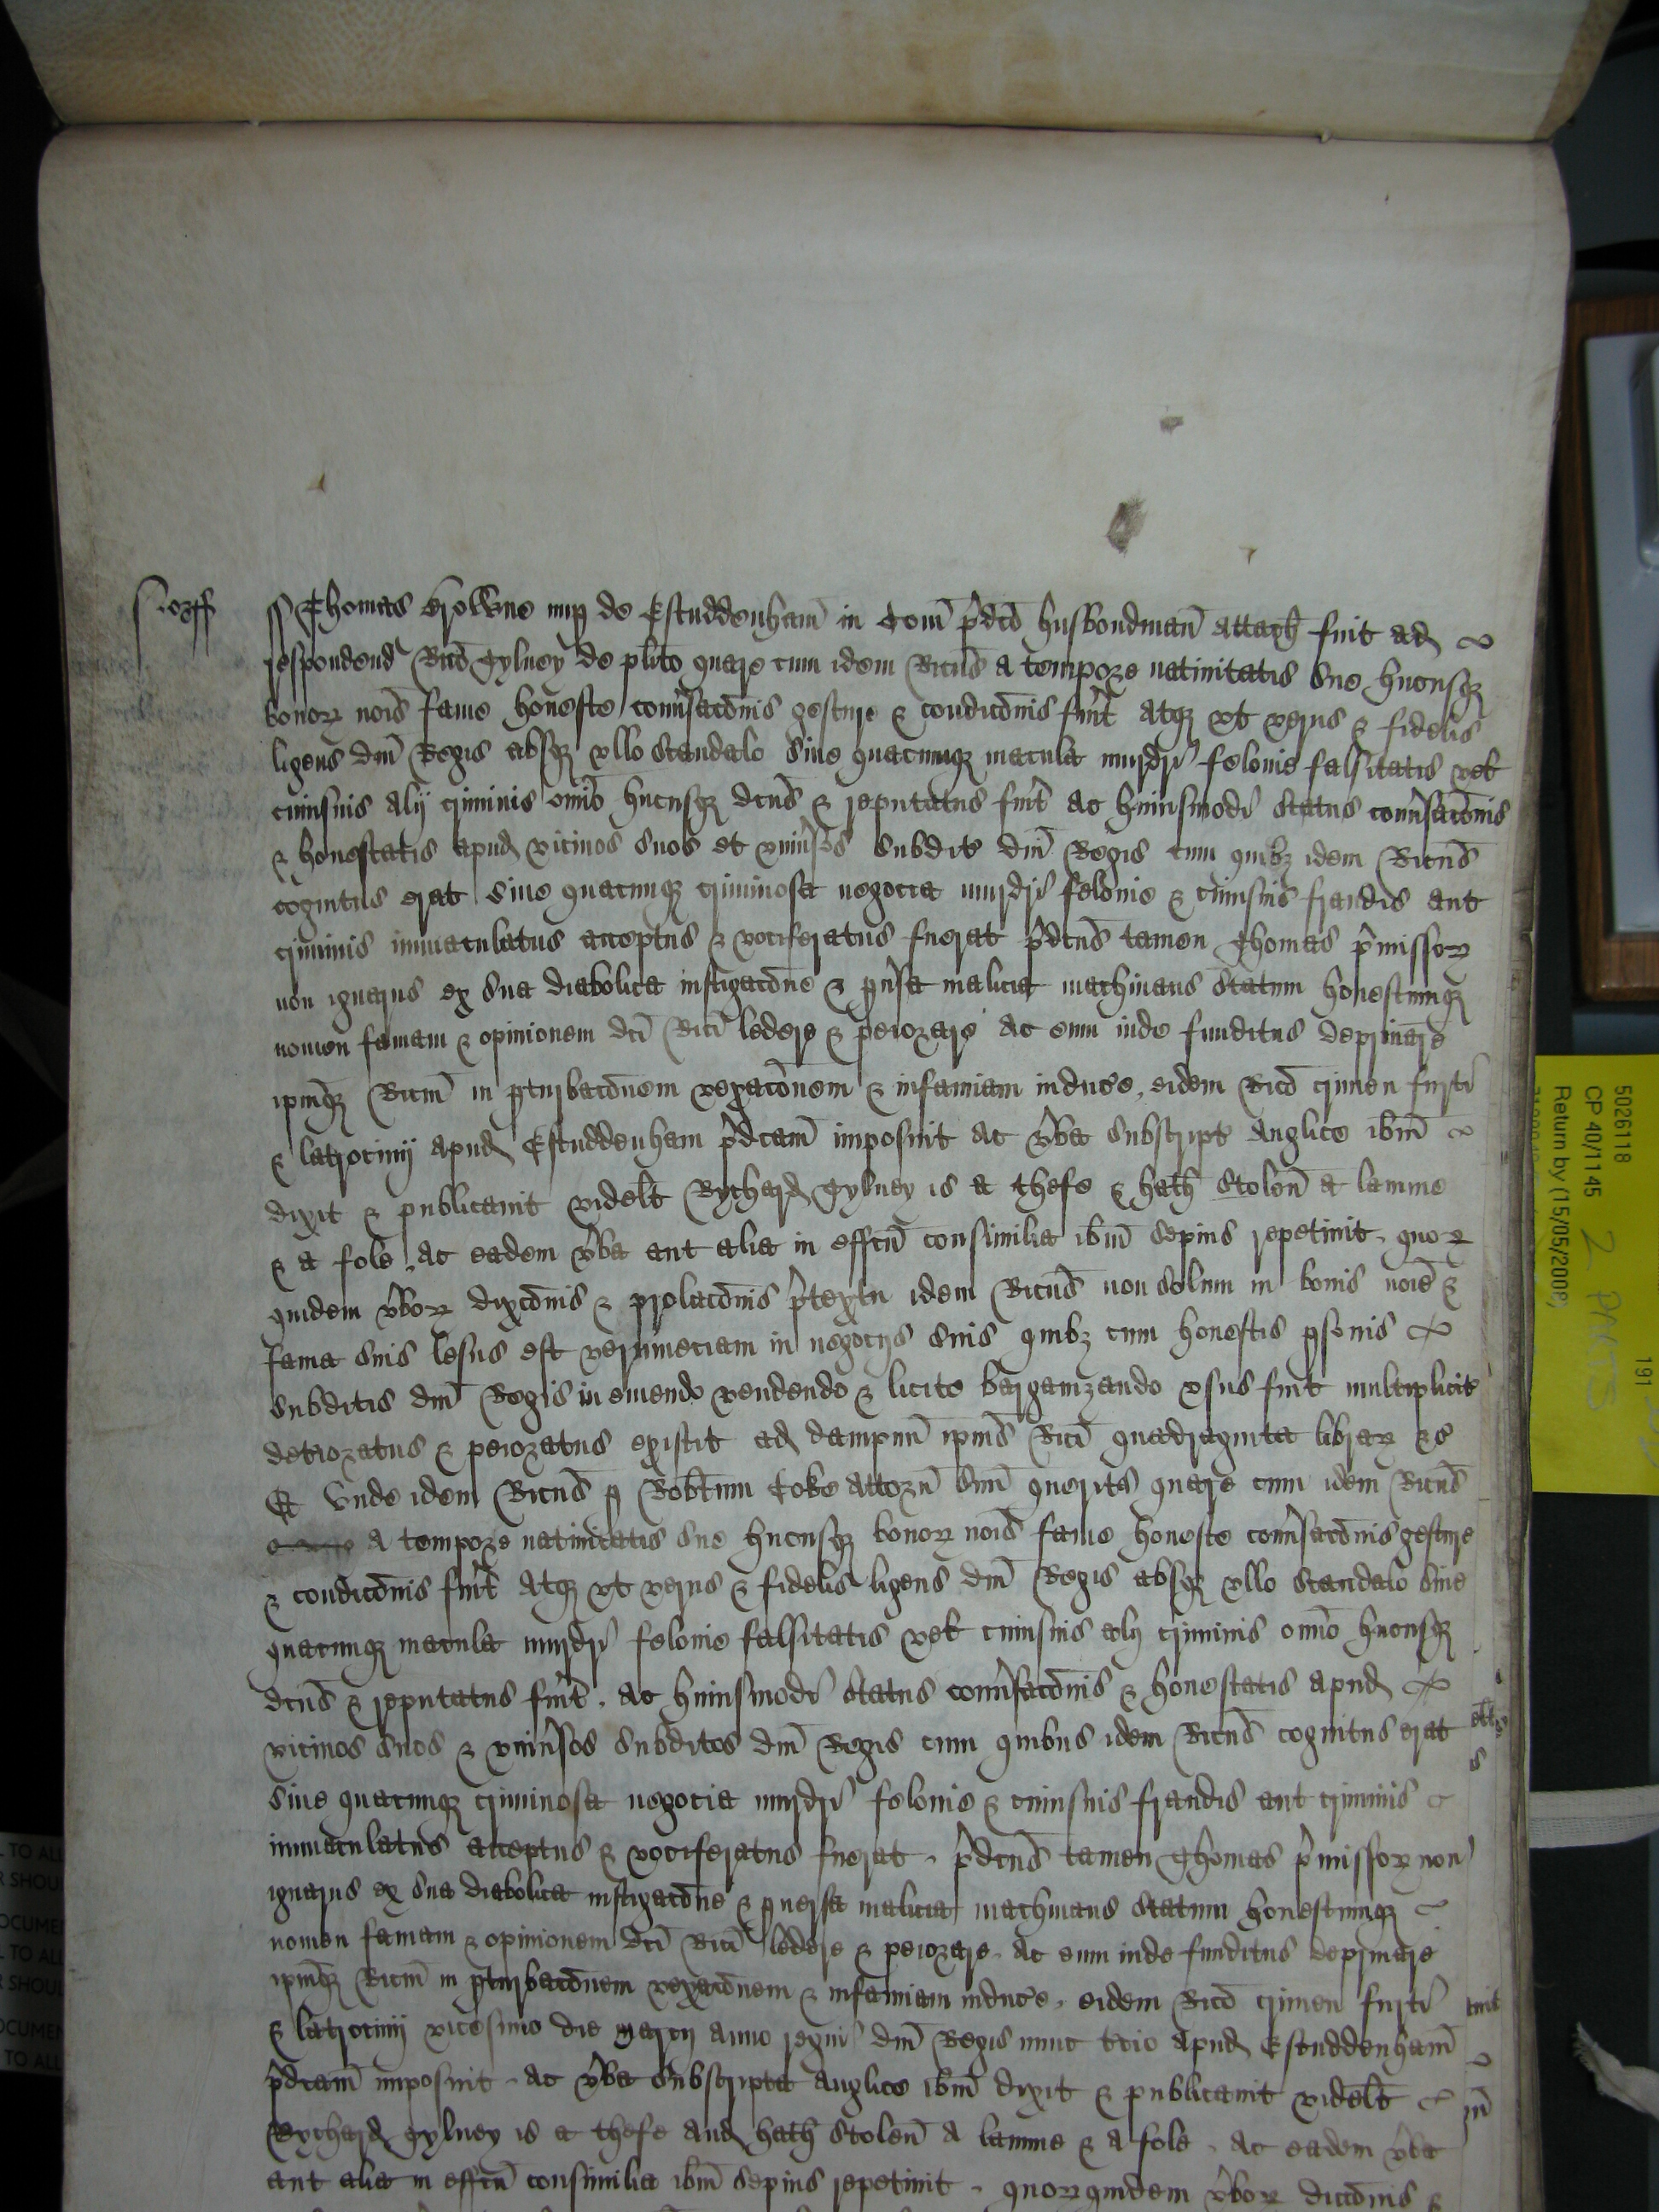 Norff
ss Thomas Browne nup de Estuddenham in Com p̄dc̄o husbondman attach fuit ad
respondend Ric̄o Gylney de plīto quare cum idem Ric̄us a tempore natiuitatis sue hucusq
bonor nois fame honeste conu̓sac̄onis gesture & condic̄onis fu̓it atq vt verus & fidelis
ligeus dn̄i Regis absq vllo scandalo siue quacumq macula murdri felonie falsitatis vel
cuiusuis alij criminis om̄io hucusq dc̄us & reputatus fu̓it ac huiusmodi status conu̓sac̄onis
& honestatis apud vicinos suos et vniu̓sos subdit dn̄i Regis cum quibz idem Ric̄us
cognitus erat siue quacumq criminosa negocia murdri felonie & cuiusuis fraudis aut
criminis immaculatus acceptus & vociferatus fuerat p̄dc̄us tamen Thomas p̄missor
non ignarus ex sua diabolica instigac̄one & pu̓sa malicia machinans statum honestumq
nomen famam & opinionem dc̄i Ric̄i ledere & peiorare ac eum inde funditus depriuare
ip̄mq Ric̄m in pturbac̄onem vexac̄onem & infamiam induc̓e, eidem Ric̄o crimen furti
& latrocinij apud Estuddenham p̄dc̄am imposuit ac v̓ba subscript Anglice ib̄m
dixit & publicauit videl̄t Rychard Gylney is a thefe & hath stolen a lamme
& a fole, ac eadem v̓ba aut alia in effc̄u consimilia ib̄m sepius repetiuit, quor
quidem v̓bor dixc̄onis & prolac̄onis p̄textu idem Ric̄us non solum in bonis noīe &
fama suis lesus est verumeciam in negocijs suis quibz cum honestis psonis
subditis dn̄i Regis in emendo vendendo & licite barganizando vsus fuit multiplicit̓
deteoratus & peioratus existit ad dampnum ip̄ius Ric̄i quadraginta librar &c
Et vnde idem Ric̄us p Rob̄tum Coke attorn suū querit̓ quare cum idem Ric̄us
a tempore natiuitatis sue hucusq bonor nois fame honeste conu̓sac̄onis gesture
& condic̄onis fu̓it atq vt verus & fidelis ligeus dn̄i Regis absq vllo scandalo siue
quacumq macula murdri felonie falsitatis vel cuiusuis alij criminis om̄io hucusq
dc̄us & reputatus fu̓it, ac huiusmodi status conu̓sac̄onis & honestatis apud
vicinos suos & vniu̓sos subditos dn̄i Regis cum quibus idem Ric̄us cognitus erat
siue quacumq criminosa negocia murdri felonie & cuiusuis fraudis aut criminis
immaculatus acceptus & vociferatus fuerat, p̄dc̄us tamen Thomas p̄missor non
ignarus ex sua diabolica instigac̄one & puersa malicia machinans statum honestumq
nomen famam & opinionem dc̄i Ric̄i ledere & peiorare, ac eum inde funditus depriuare
ip̄mq Ric̄m in pturbac̄onem vexac̄onem & infamiam induc̓e, eidem Ric̄o crimen furti
& latrocinij vicesimo die marcij anno regni dn̄i Regis nunc t̓cio apud Estuddenham
p̄dc̄am imposuit, ac v̓ba subscripta Anglice ib̄m dixit & publicauit videl̄t
Rychard Gylney is a thefe and hath stolen a lamme & a fole, ac eadem v̓ba
aut alia in effc̄u consimilia ib̄m sepius repetiuit, quor quidem v̓bor dicc̄onis &
5026118
CP 40/1145
Return by (15/05/2008)
2 PARTS
191